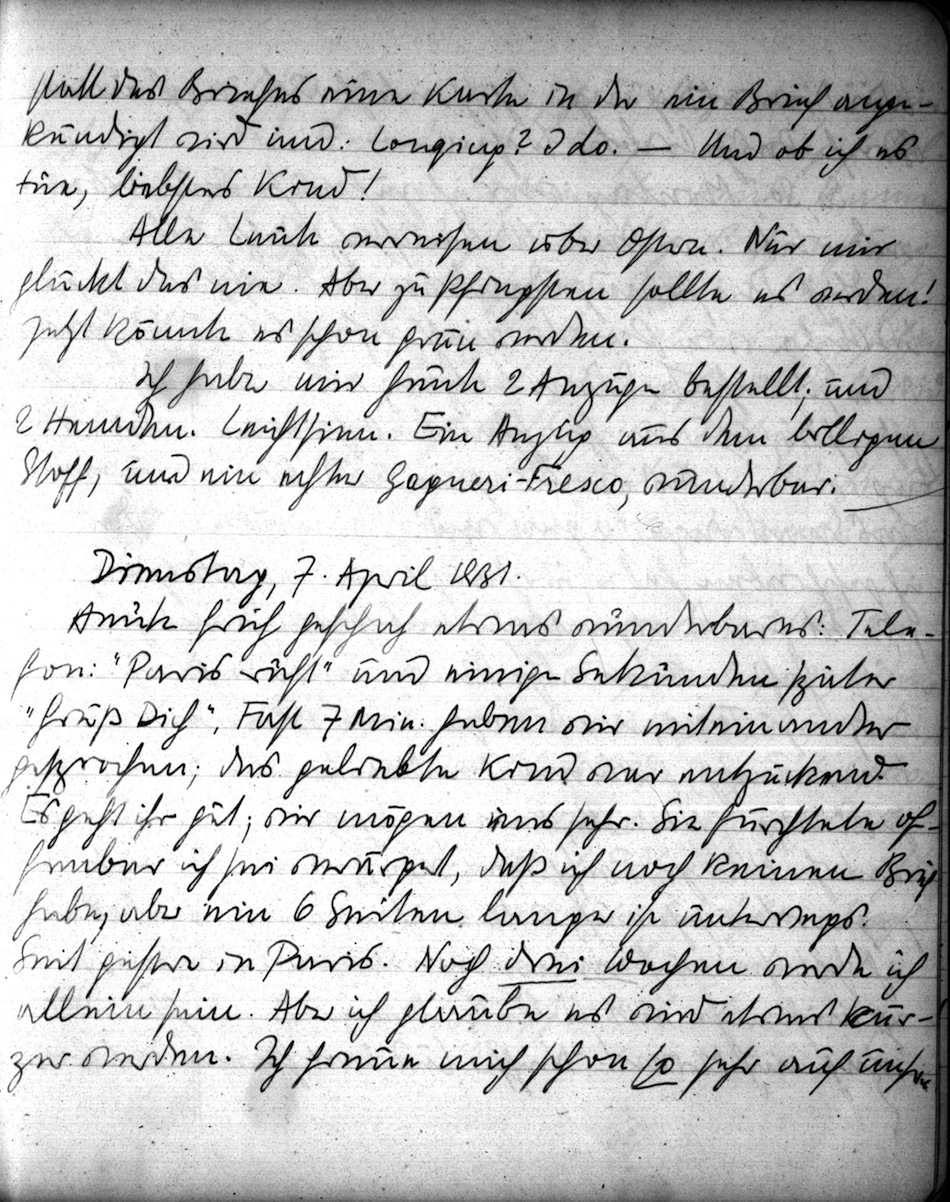 statt des Briefes eine Karte in der ein Brief ange-
kündigt wird und: Longing? I do. — Und ob ich es
tue, liebstes Kind!
Alle Leute verreisen über Ostern. Nur mir
glückt das nie. Aber zu Pfingsten sollte es werden!
Jetzt könnte es schon grün werden.
Ich habe mir heute 2 Anzüge bestellt; und
2 Hemden. Leichtsinn. Ein Anzug aus dem billigen
Stoff, und ein echter Gagneri-Fresco, wunderbar.
Dienstag, 7. April 1931.
Heute früh geschah etwas wunderbares: Tele-
fon: "Paris ruft" und einige Sekunden später
"Grüß Dich". Fast 7 Min. haben wir miteinander
gesprochen; das geliebte Kind war entzückend.
Es geht ihr gut; wir mögen uns sehr. Sie fürchtete of-
fenbar ich sei verärgert, daß ich noch keinen Brief
habe, aber ein 6 Seiten langer ist unterwegs.
Seit gestern in Paris. Noch drei Wochen werde ich
allein sein. Aber ich glaube es wird etwas kür-
zer werden. Ich freue mich schon so sehr auf unsre